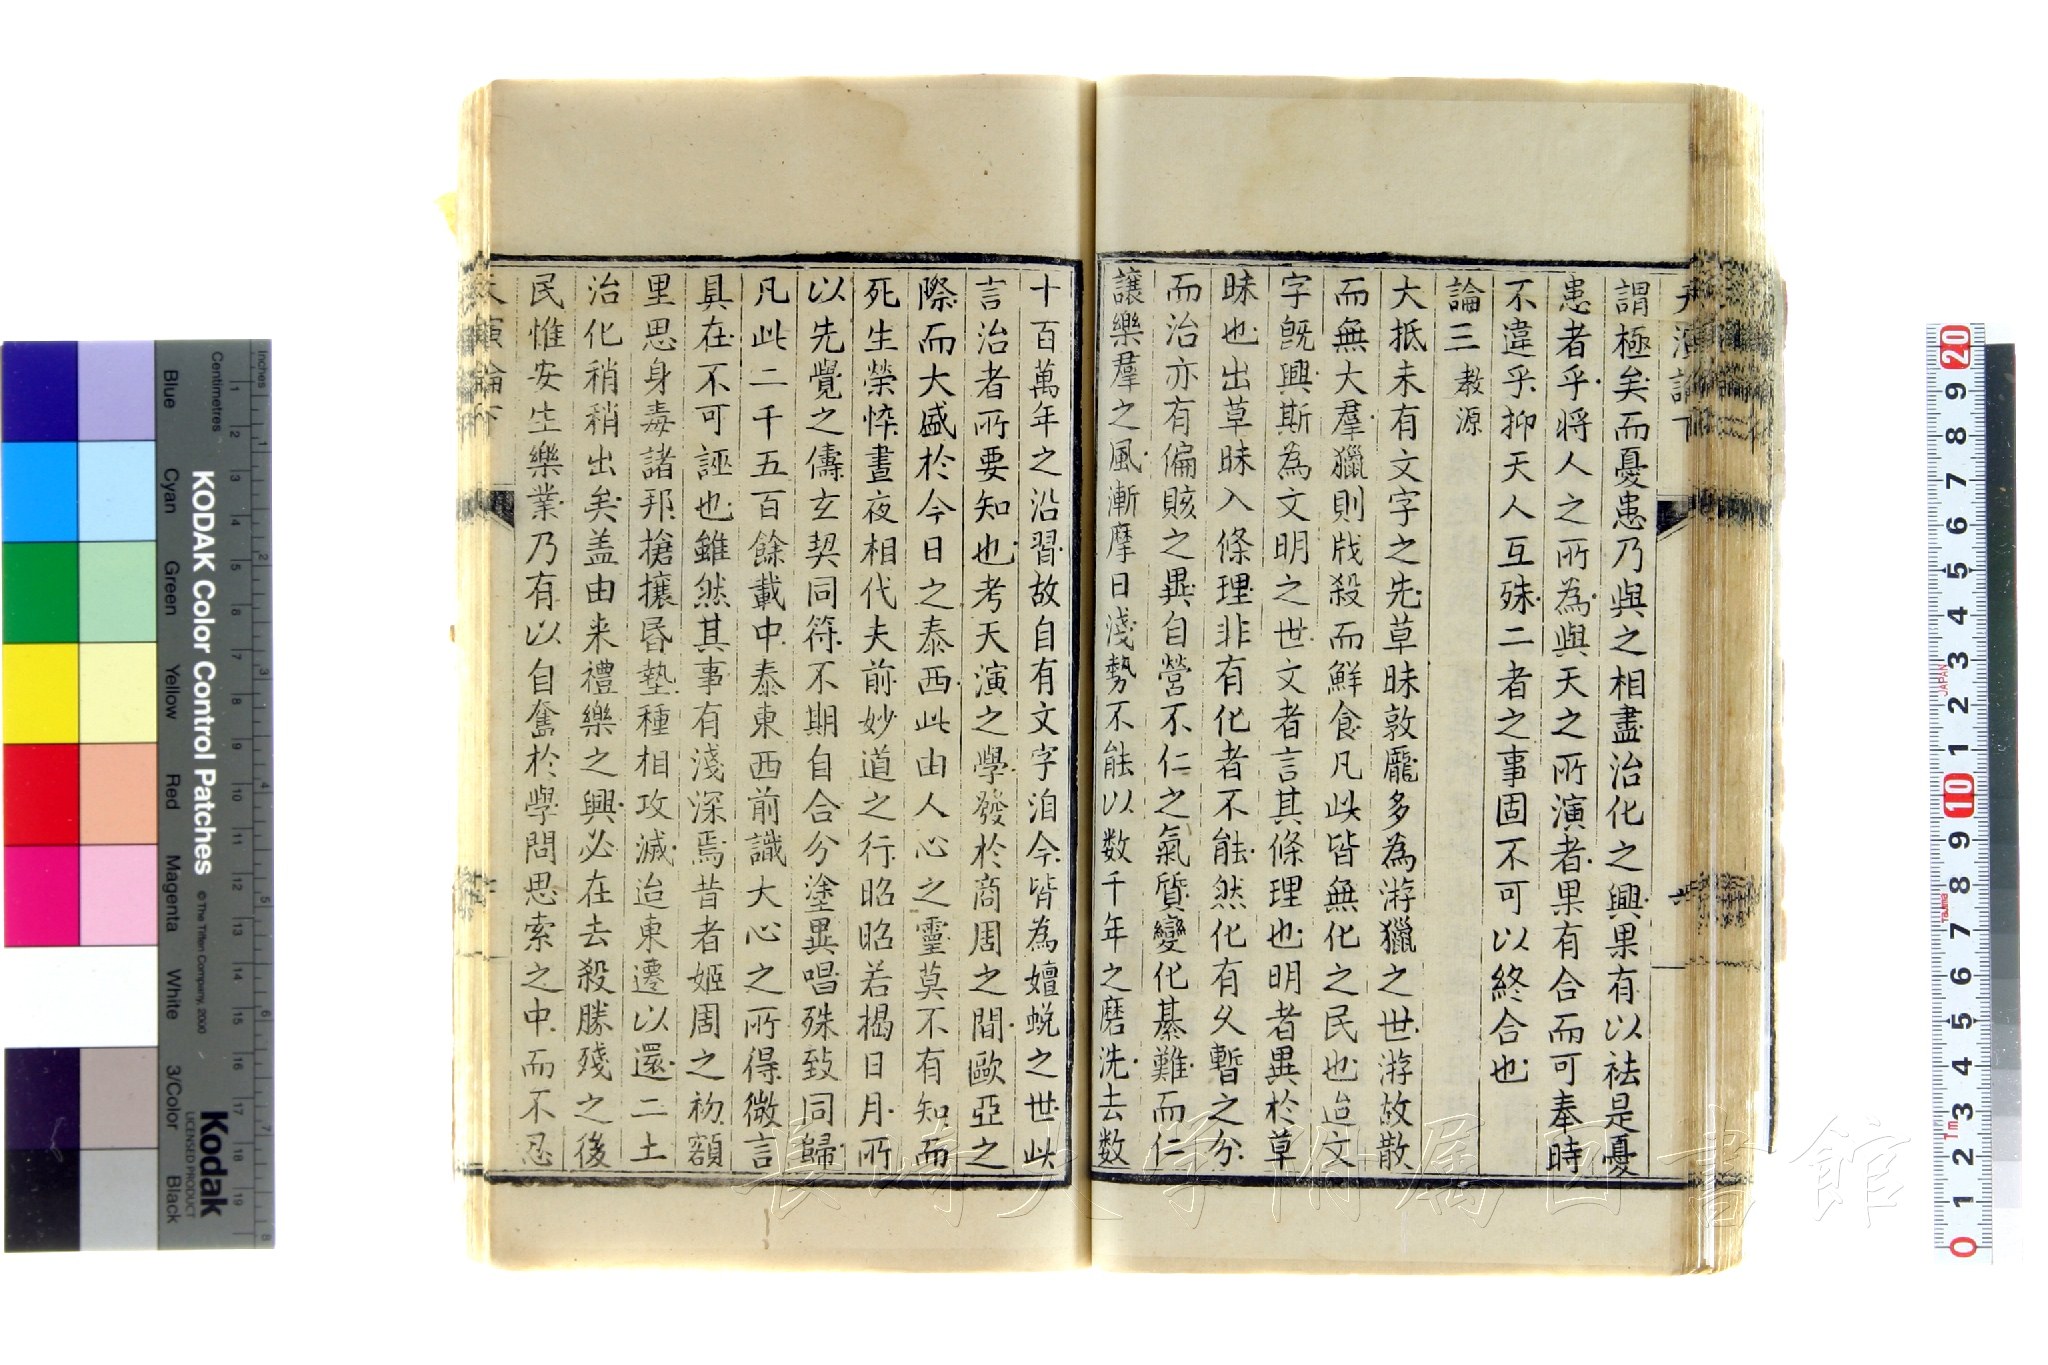 天演論下
謂極矣而憂患乃與之相盡治化之興果有以袪是憂
患者乎將人之所為與天之所演者果有合而可奉時
不違乎抑天人互殊二者之事固不可以終合也
論三 教源
大抵未有文字之先草昧敦龐多為游獵之世游故散
而無大羣獵則戕殺而鮮食凡此皆無化之民也迨文
字旣興斯為文明之世文者言其條理也明者異於草
昧也出草昧入條理非有化者不能然化有久暫之分
而治亦有偏賅之異自營不仁之氣質變化綦難而仁
讓樂羣之風漸摩日淺勢不能以数千年之磨洗去数
十百萬年之沿習故自有文字洎今皆為嬗蛻之世此
言治者所要知也考天演之學發於商周之間歐亞之
際而大盛於今日之泰西此由人心之靈莫不有知而
死生榮悴晝夜相代夫前妙道之行昭昭若揭日月所
以先覺之儔玄契同符不期自合分塗異唱殊致同歸
凡此二千五百餘載中泰東西前識大心之所得微言
具在不可誣也雖然其事有淺深焉昔者姬周之初額
里思身毒諸邦搶攘昏墊種相攻滅迨東遷以還二土
治化稍稍出矣盖由来禮樂之興必在去殺勝殘之後
民惟安生樂業乃有以自奮於學問思索之中而不忍
天演論下
KODAK Color Control Patches
© The Tiffen Company, 2000
Kodak
LICENSED PRODUCT
Inches
Centimetres
Blue
Cyan
Green
Yellow
Red
Magenta
White
3/Color
Black
JAPAN
Tajima
長崎大学附属図書館